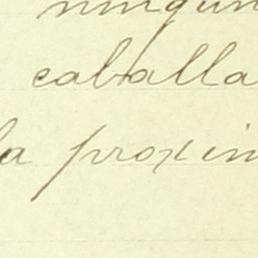 ningun
caballa
la proxim